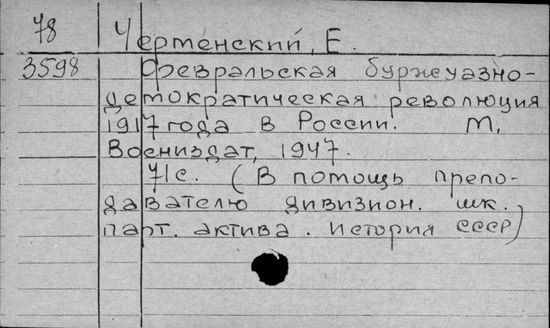 78 Чертенский, Е.
3598 Февральская буржуазно-
демократическая революция
1917 года в России. М,
Воениздат, 1947.
71с. (В помощь препо-
давателю дивизион. шк.
парт. актива. История СССР)